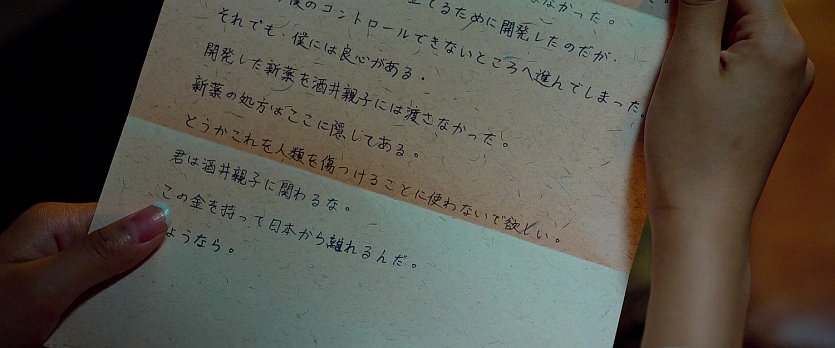 なかった。
僕のコントロールできないところへ進んでしまった。
てるために開発したのだが、
それでも、僕には良心がある。
開発した新薬を酒井親子には渡さなかった。
新薬の処方はここに隠してある。
どうかこれを人類を傷つけることに使わないで欲しい。
君は酒井親子に関わるな。
この金を持って日本から離れるんだ。
ようなら。